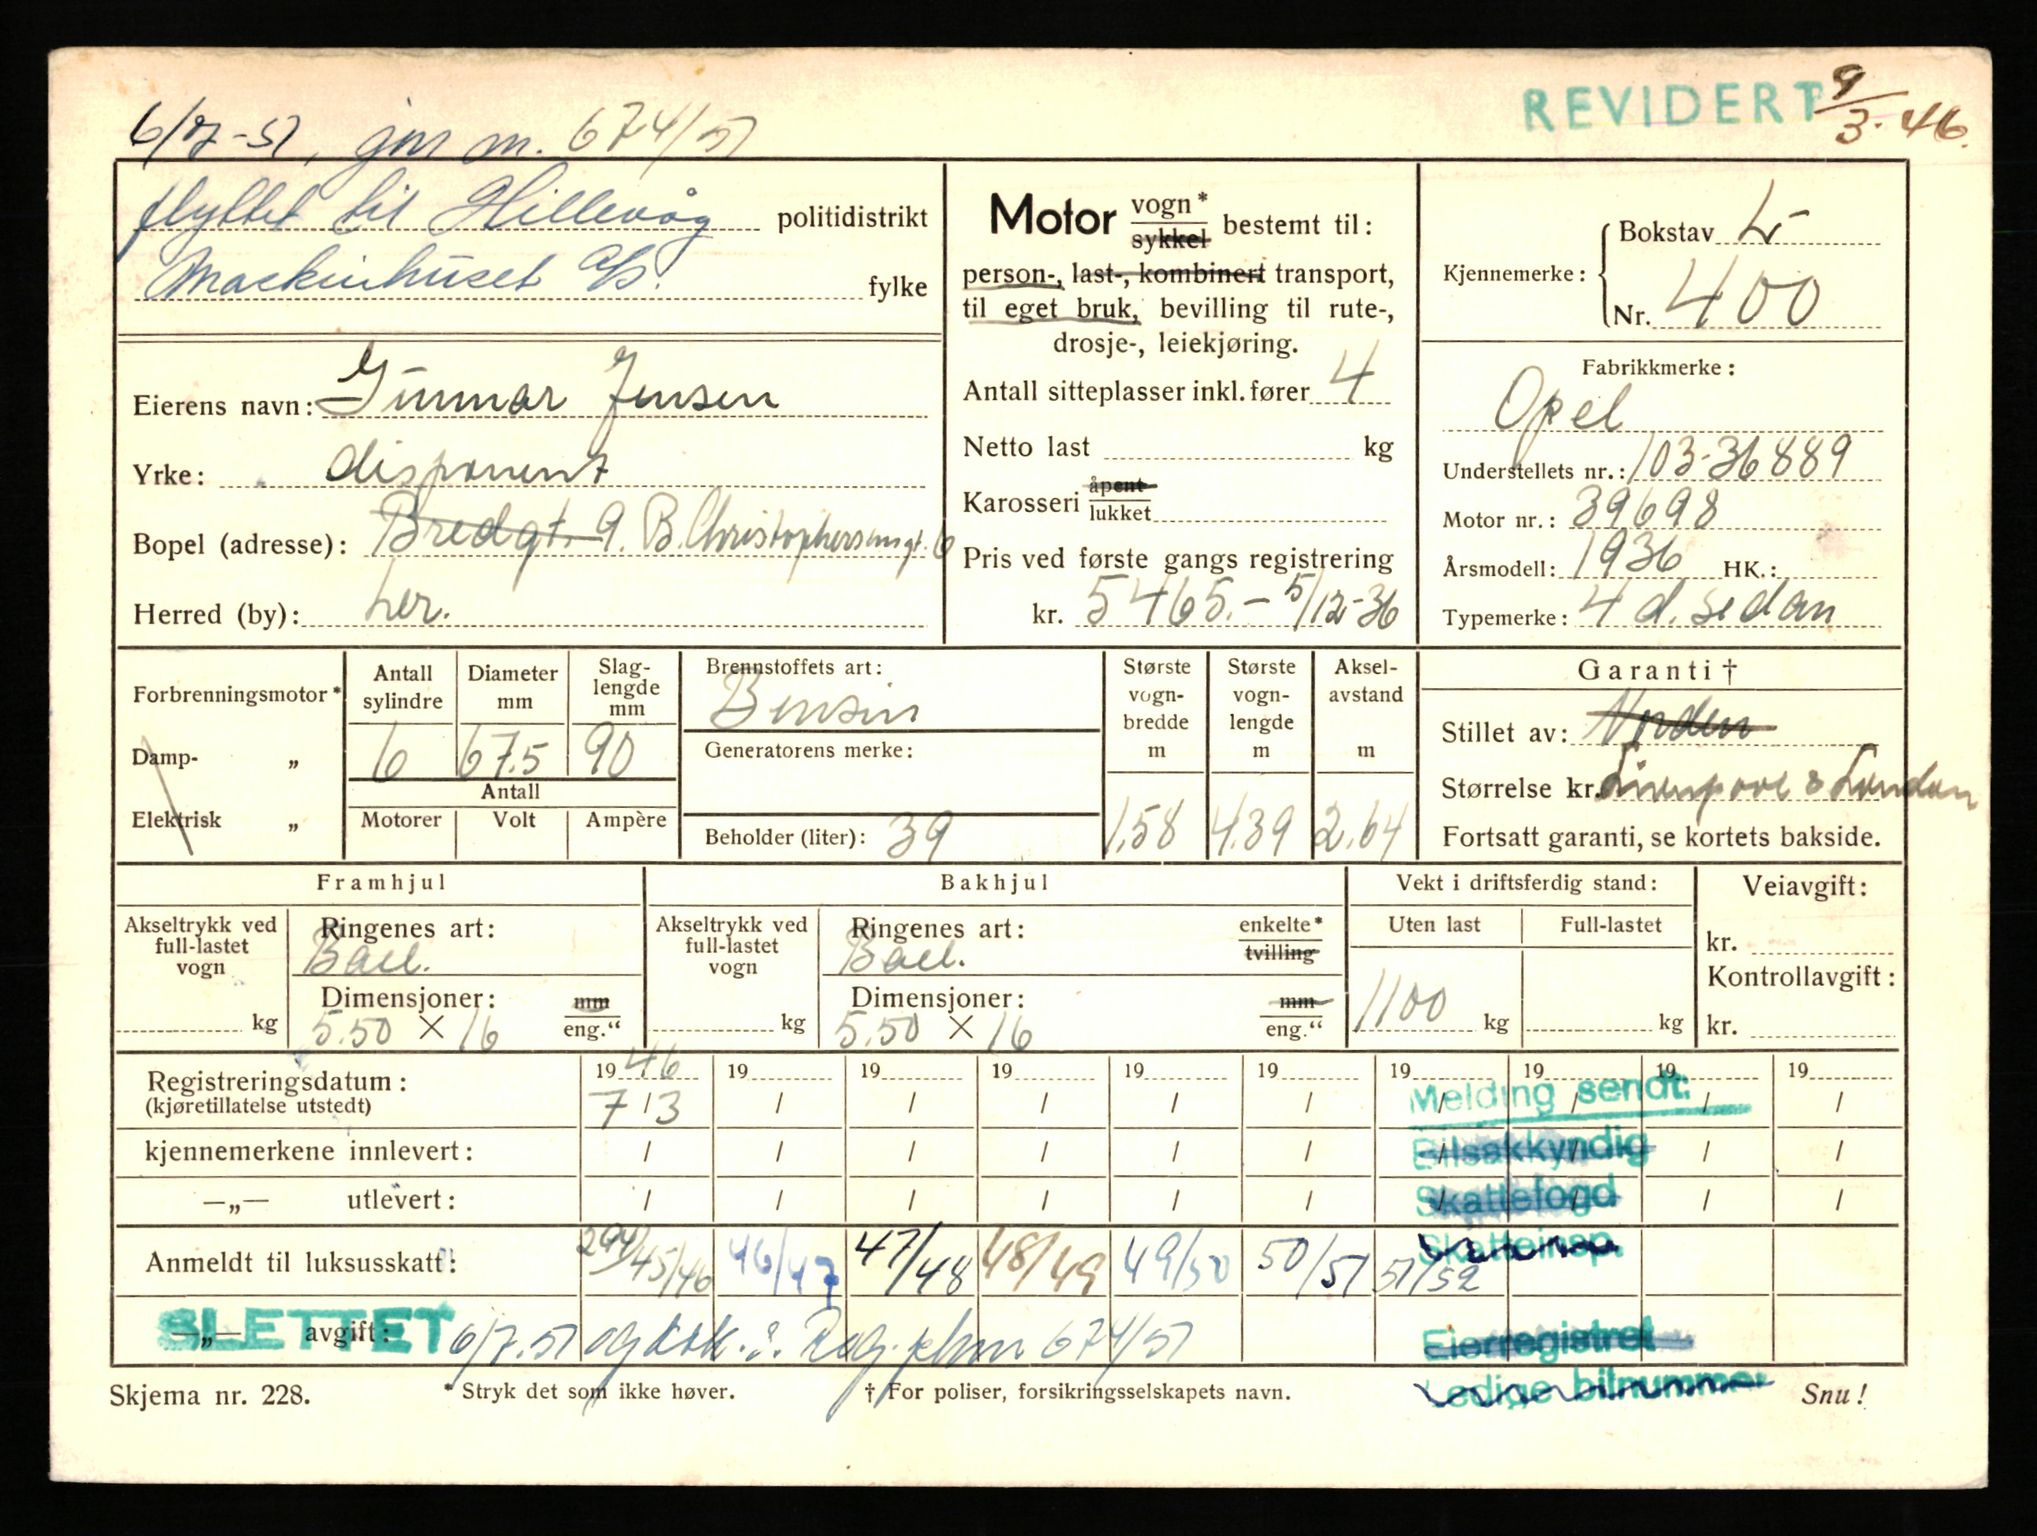 REVIDERT 9/3-46.
6/7-51, jnr m. 674/51
flyttet til Hillevåg politidistrikt
Maskinhuset A/S. fylke
Eierens navn: Gunnar Jensen
Yrke: disponent
Bopel (adresse): Bredgt. 9. B. Christophersensgt. 6
Herred (by): her.
Motor vogn* sykkel bestemt til:
person-, last-, kombinert transport,
til eget bruk, bevilling til rute-,
drosje-, leiekjøring.
Antall sitteplasser inkl. fører 4
Netto last kg
Karosseri åpent lukket
Pris ved første gangs registrering
kr. 5465.- 5/12-36
Kjennemerke: Bokstav L-
Nr. 400
Fabrikkmerke:
Opel
Understellets nr.: 103-36889
Motor nr.: 39698
Årsmodell: 1936 HK.:
Typemerke: 4 d. sedan
Forbrenningsmotor*
Damp- „
Elektrisk „
Antall sylindre Diameter mm Slaglengde mm
6 67.5 90
Antall
Motorer Volt Ampère
Brennstoffets art:
Bensin
Generatorens merke:
Beholder (liter): 39
Største vognbredde m Største vognlengde m Akselavstand m
1.58 4.39 2.64
Garanti †
Stillet av: Norden
Størrelse kr. Liverpool & London
Fortsatt garanti, se kortets bakside.
Framhjul
Akseltrykk ved full-lastet vogn
kg
Ringenes art:
Ball.
Dimensjoner: mm
5.50 × 16 eng.“
Bakhjul
Akseltrykk ved full-lastet vogn
kg
Ringenes art: enkelte*
Ball. tvilling
Dimensjoner: mm
5.50 × 16 eng.“
Vekt i driftsferdig stand:
Uten last Full-lastet
1100 kg kg
Veiavgift:
kr.
Kontrollavgift:
kr.
Registreringsdatum: 1946 19 19 19 19 19 19 19 19 19
(kjøretillatelse utstedt) 7/3 / / / / / / / / /
Melding sendt:
kjennemerkene innlevert: / / / / / / / / / /
Bilsakkyndig
—„— utlevert: / / / / / / / / / /
Skattefogd
Skatteinsp.
Anmeldt til luksusskatt: 45/46 46/47 47/48 48/49 49/50 50/51 51/52
—„— avgift:
SLETTET 6/7.51 Reg. 674/51
Eierregistret
Ledige bilnummer
Skjema nr. 228. * Stryk det som ikke høver. † For poliser, forsikringsselskapets navn. Snu!